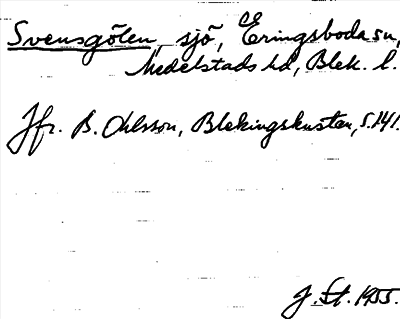 Svensgölen, sjö, Eringsboda sn,
Medelstads hd, Blek. l.
Jfr. B. Ohlsson, Blekingskusten, s. 141.
J. St. 1955.